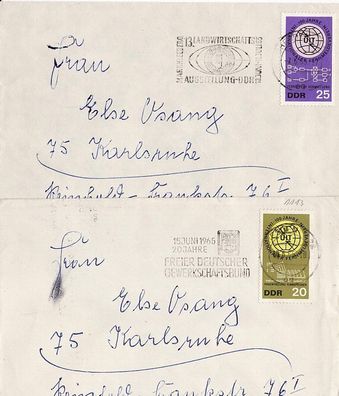 13. LANDWIRTSCHAFTS
AUSSTELLUNG-DDR
DDR 25
Frau
Else Osang
75 Karlsruhe
Reinhold-Frankstr. 76 I
15 JUNI 1965
20 JAHRE
FREIER DEUTSCHER
GEWERKSCHAFTSBUND
DDR 20
Frau
Else Osang
75 Karlsruhe
Reinhold-Frankstr. 76 I